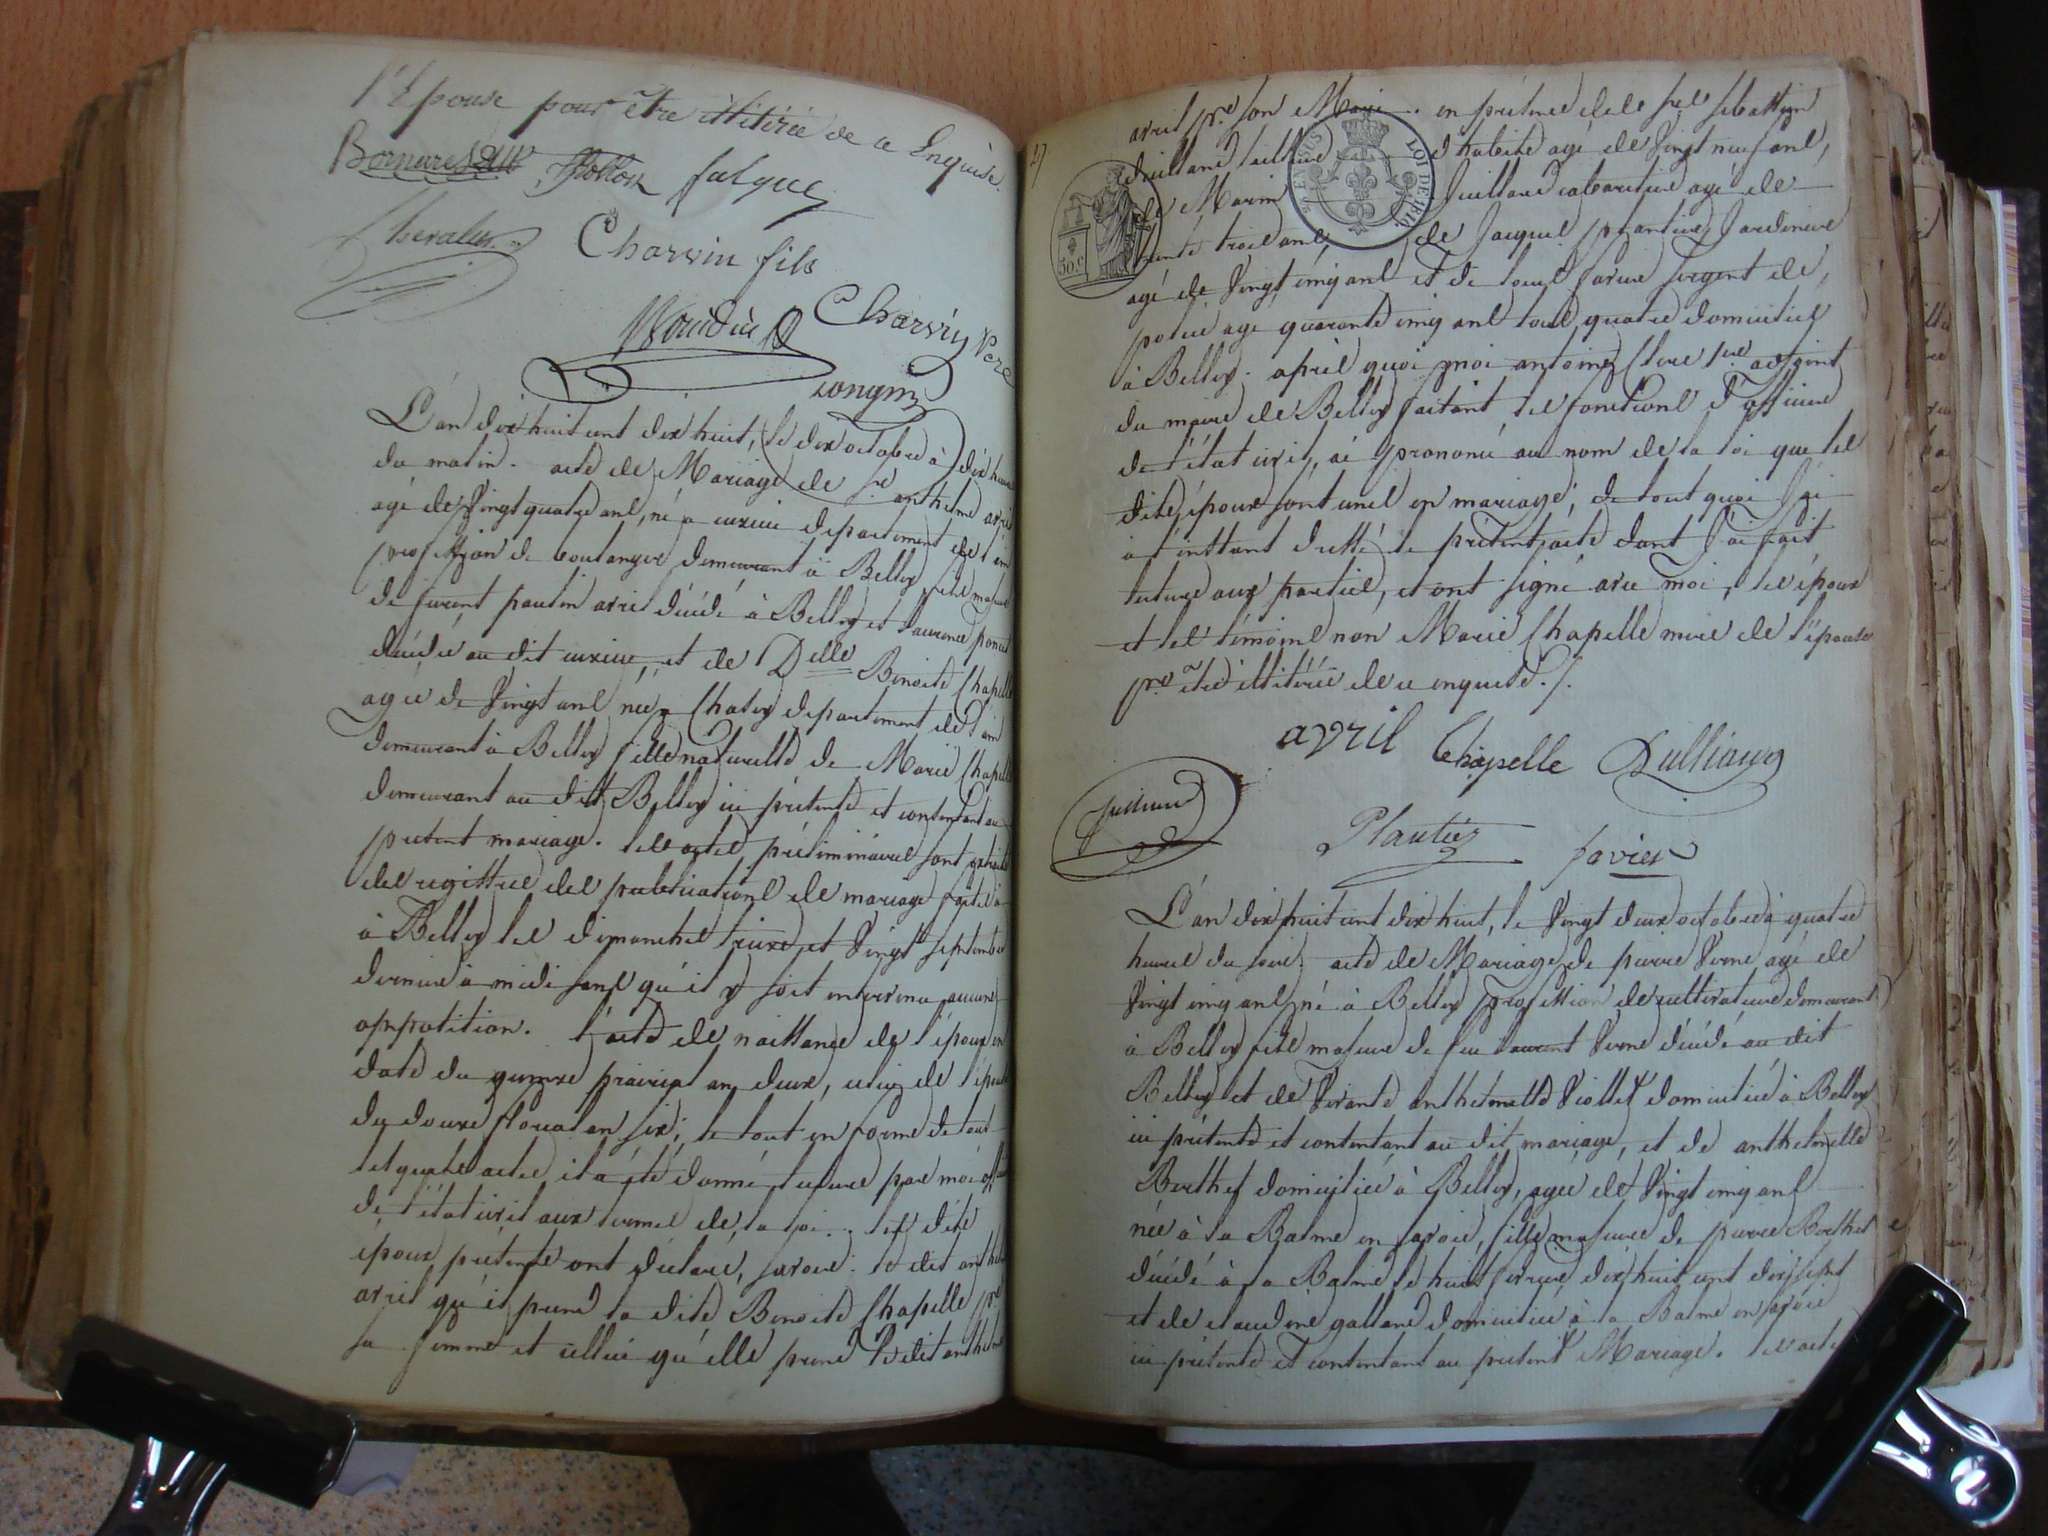 l'Epouse pour être illitérée de ce Enquise.
falque
Chevalier
Charvin fils
Charvin Pere
L'an dix huit cent dix huit, le dix octobre à dix heures
du matin. acte de Mariage de Sr. anthelme avril
agé de Vingt quatre ans, né a departement de l'ain
profession de boulanger demeurant à Belley, fils majeur
de avril décédé à Belley et Laurence poncet
décédée au dit et de Delle Benoite Chapelle
agée de Vingt ans née a Chatey departement de l'ain
demeurant à Belley fille naturelle de Marie Chapelle
demeurant au dit Belley ici présente et consentant au
présent mariage. les actes préliminaires sont extraits
des registres des publications de mariage faites
à Belley les dimanches treize et Vingt septembre
dernier à midi sans qu'il y soit intervenu aucune
opposition. l'acte de naissance de l'époux en
date du quinze prairial an deux, celui de l'épouse
du douze floreal an six; le tout en forme de tous
lesquels actes il a été donné lecture par moi officier
de l'état civil aux termes de la loi. les dits
époux présents ont déclaré, savoir. le dit anthelme
avril qu'il prend la dite Benoite Chapelle pr.
sa femme et celle ci qu'elle prend le dit anthelme
27
avril pr. son Mari. en présence de Srs Sebastien
agé de Vingt neuf ans,
de Marin Juilland cabaretier agé de
trente trois ans, de Jacques plantier Jardinier
agé de Vingt cinq ans et de Louis favier sergent de
police agé quarante cinq ans tous quatre domiciliés
à Belley. après quoi moi antoine 1er adjoint
du maire de Belley faisant les fonctions d'officier
de l'état civil, ai prononcé au nom de la loi que les
dits époux sont unis en mariage, de tout quoi J'ai
à l'instant dressé le présent acte dont J'ai fait
lecture aux parties, et ont signé avec moi, les époux
et les témoins non Marie Chapelle mere de l'épouse
pr. être illitérée de ce enquise./.
avril Chapelle
Juilland
Plantier favier
L'an dix huit cent dix huit, le Vingt deux octobre à quatre
heures du soir. acte de Mariage de pierre Verne agé de
Vingt cinq ans, né à Belley profession de cultivateur demeurant
à Belley fils majeur de feu Laurent Verne décédé au dit
Belley et de Vivante anthelmette Viollet domiciliée à Belley
ici présente et consentant au dit mariage, et de anthelmette
Berthet domiciliée à Belley, agée de Vingt cinq ans
née à la Balme en savoie, fille majeure de pierre Berthet
décédé à la Balme le huit fevrier dix huit cent dix sept
et de claudine galland domiciliée à la Balme en savoie
ici présente et consentant au présent Mariage. les actes
50 c
LOI DE 1816